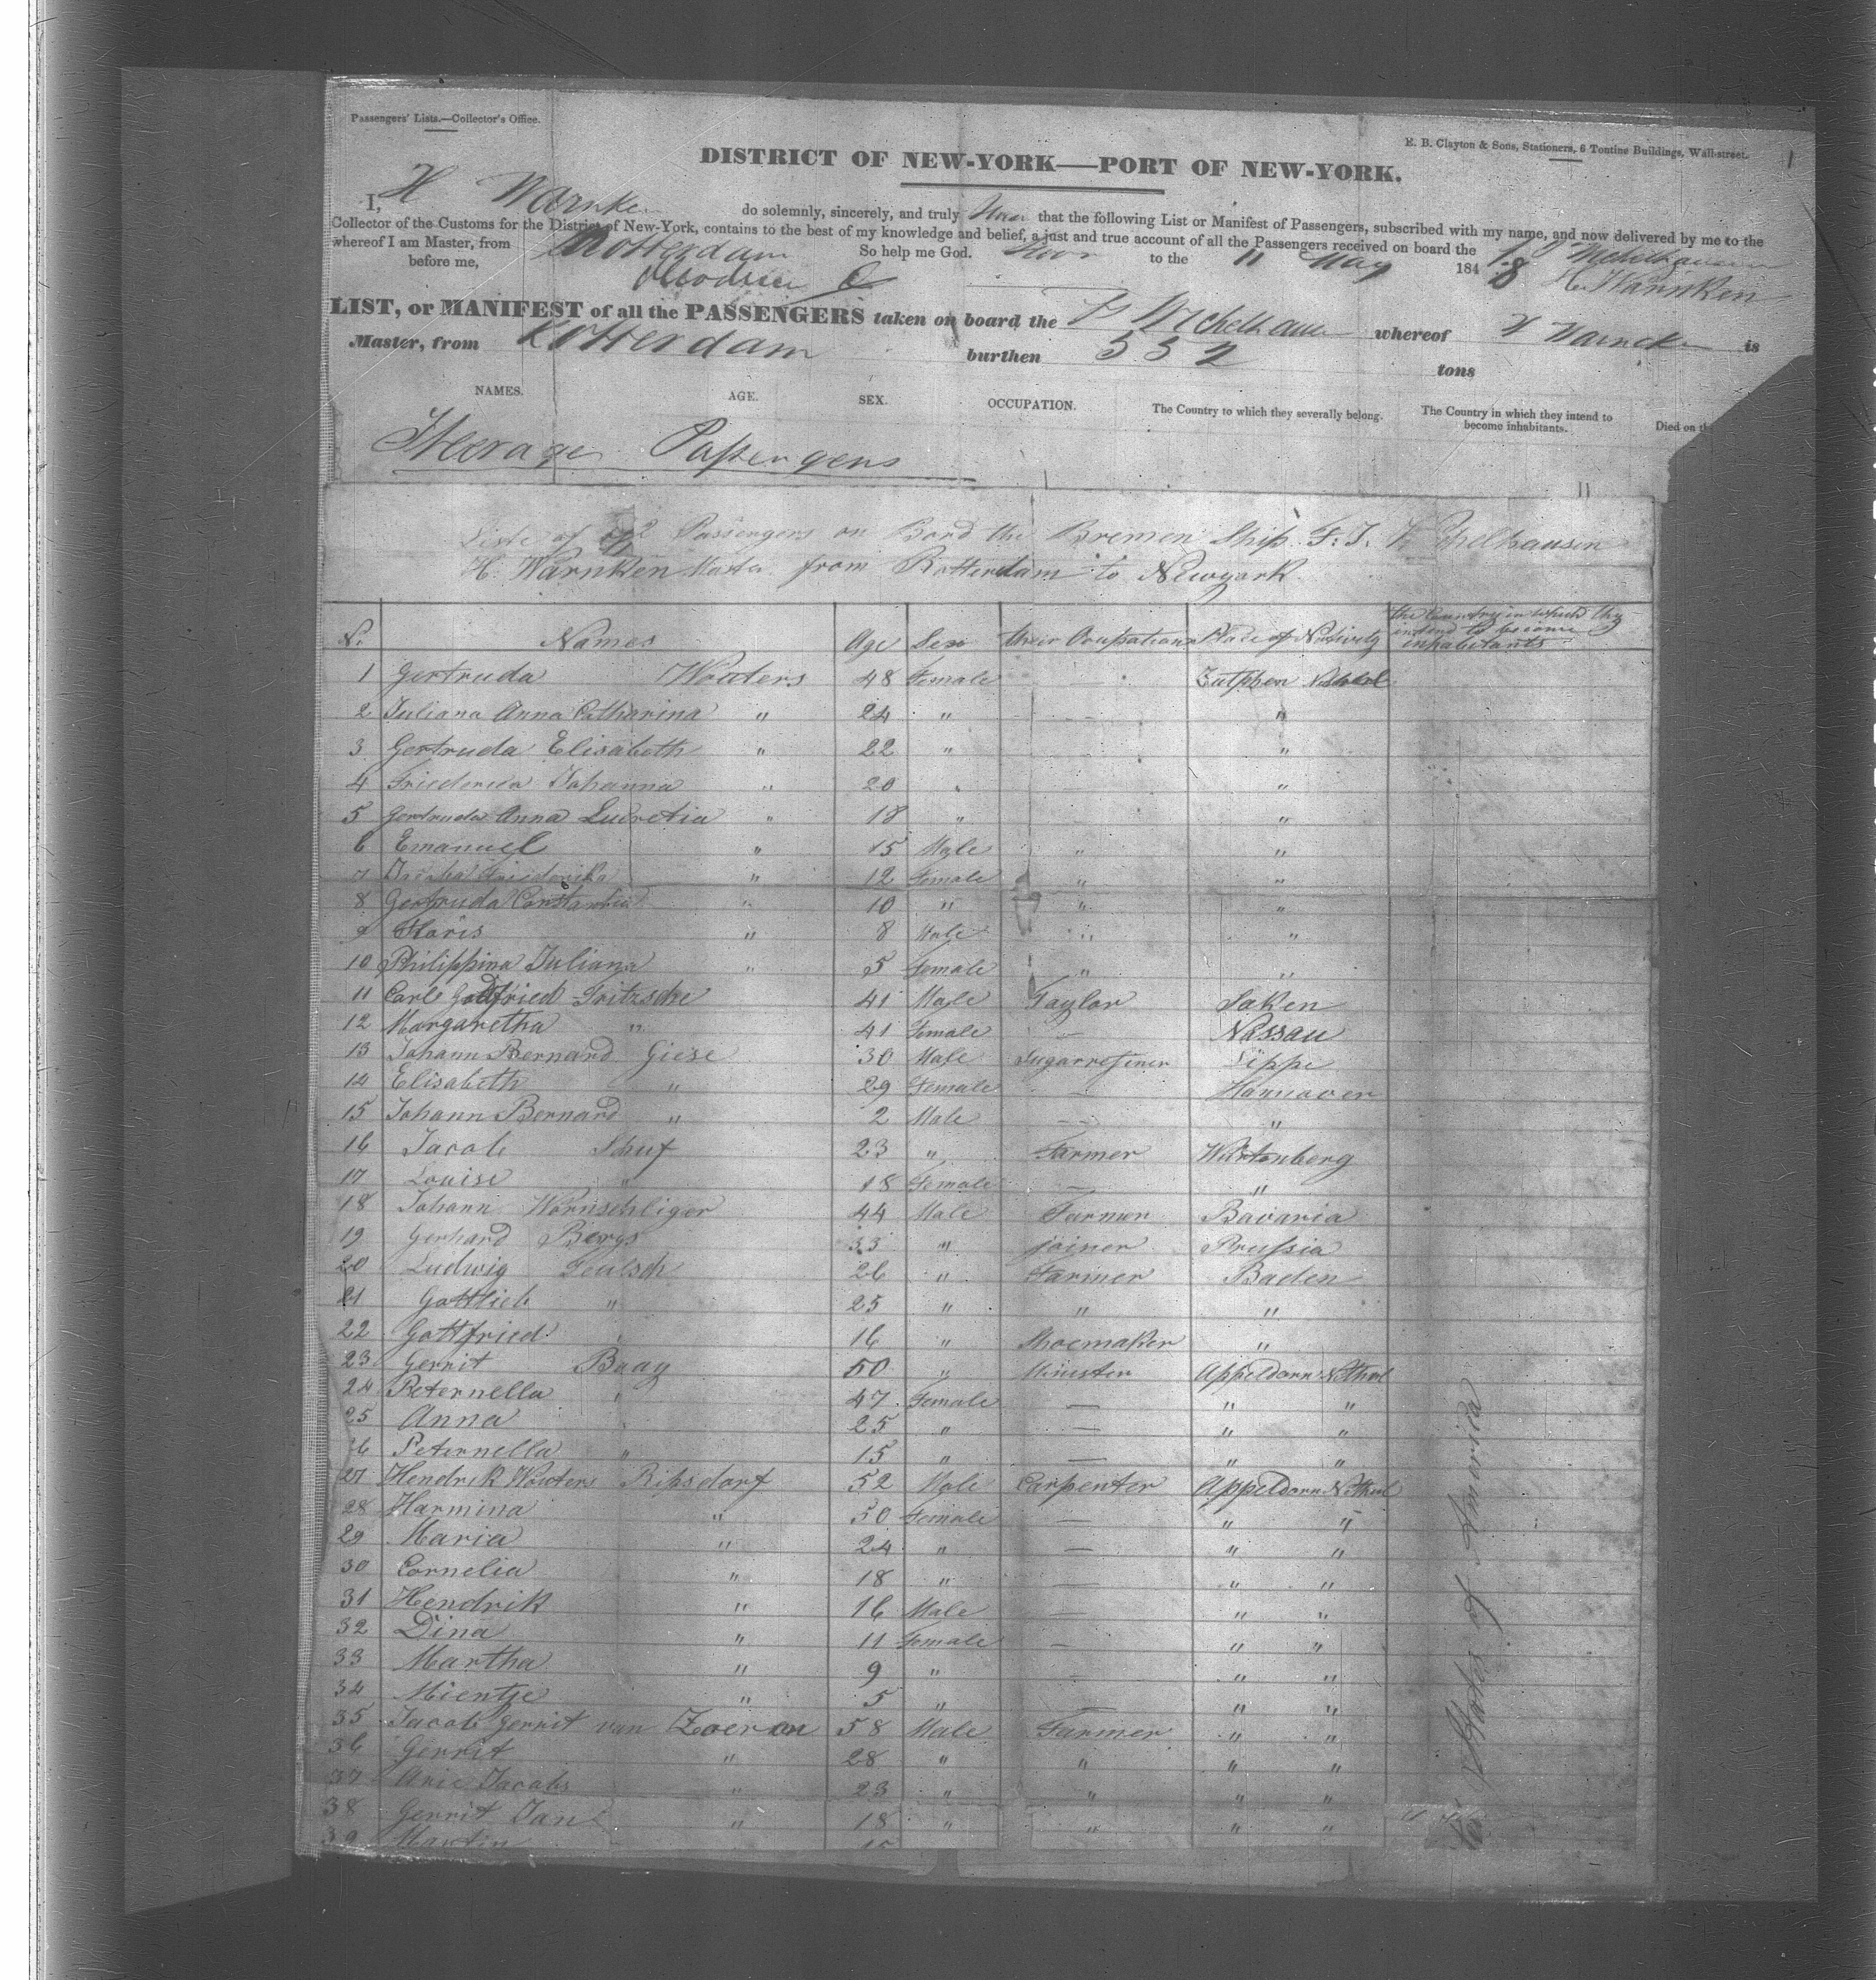 Passengers' Lists.—Collector's Office.
E. B. Clayton & Sons, Stationers, 6 Tontine Buildings, Wall-street.
1
DISTRICT OF NEW-YORK—PORT OF NEW-YORK.
I, H Warnken do solemnly, sincerely, and truly that the following List or Manifest of Passengers, subscribed with my name, and now delivered by me to the
Collector of the Customs for the District of New-York, contains to the best of my knowledge and belief, a just and true account of all the Passengers received on board the
whereof I am Master, from Rotterdam So help me God.
before me, to the 11 May 1848 H. Warnken
LIST, or MANIFEST of all the PASSENGERS taken on board the whereof H Warncken is
Master, from Rotterdam burthen 532 tons
NAMES. AGE. SEX. OCCUPATION. The Country to which they severally belong. The Country in which they intend to become inhabitants. Died on
Steerage Passengers
Liste of Passengers on Bord the Bremen Ship F. J. Wichelhausen
H. Warnken Master from Rotterdam to Newyork
N. Names Age Sex their Ocupations Place of Nativity the Country in which they intend to become inhabitants
1 Gertruda Wouters 48 Female Zutphen
2 Juliana Anna Catharina " 24 " "
3 Gertruda Elisabeth " 22 " "
4 Friederica Johanna " 20 " "
5 Gertruda Anna Lucretia " 18 " "
6 Emanuel " 15 Male " "
7 " 12 Female " "
8 Gertruda Constantia " 10 " " "
9 Floris " 8 Male " "
10 Philippina Juliana " 5 Female " "
11 Carl Gottfried Fritzsche 41 Male Taylor Saken
12 Margaretha " 41 Female — Nassau
13 Johann Bernard Giese 30 Male Sugarrefiner Lippe
14 Elisabeth " 29 Female — Hannover
15 Johann Bernard " 2 Male — "
16 Jacob Schuf 23 " Farmer Würtenberg
17 Louise " 18 Female — "
18 Johann Wornschliger 44 Male Farmer Bavaria
19 Gerhard Bergs 33 " joiner Prussia
20 Ludwig 26 " Farmer Baden
21 Gottlieb " 25 " " "
22 Gottfried " 16 " Shoemaker "
23 Gerrit Baay 50 " Minister Appeldorn Nethrl
24 Peternella " 47 Female — " "
25 Anna " 25 " — " "
26 Peternella " 15 " — " "
27 Hendrik Wouters Ribsdorf 52 Male Carpenter Appeldorn Nethrl
28 Harmina " 50 Female — " "
29 Maria " 24 " — " "
30 Cornelia " 18 " — " "
31 Hendrik " 16 Male — " "
32 Dina " 11 Female — " "
33 Martha " 9 " — " "
34 Mientje " 5 " — " "
35 Jacob Gerrit van Zoeren 58 Male Farmer " "
36 Gerrit " 28 " " " "
37 Arie Jacob " 23 " " " "
38 Gerrit Jan " 18 " " " "
39 Martin 15
States of America